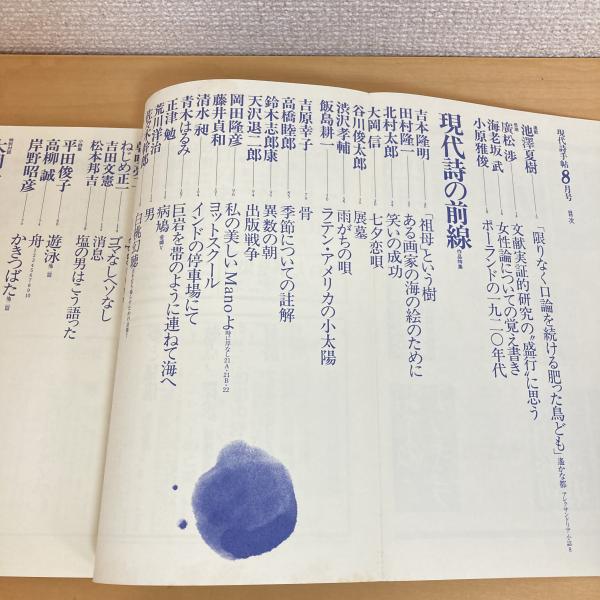 現代詩手帖 8月号 目次
連載 池澤夏樹 「限りなく口論を続ける肥った鳥ども」 遙かな都 アレクサンドリア小誌8
廣松渉 文献実証的研究の“盛行”に思う
海老坂武 女性論についての覚え書き
小原雅俊 ポーランドの一九二〇年代
現代詩の前線 作品特集
吉本隆明 「祖母」という樹
田村隆一 ある画家の海の絵のために
北村太郎 笑いの成功
大岡信 七夕恋唄
谷川俊太郎 展墓
渋沢孝輔 雨がちの唄
飯島耕一 ラテン・アメリカの小太陽
吉原幸子 骨
高橋睦郎 季節についての註解
鈴木志郎康 異数の朝
天沢退二郎 出版戦争
岡田隆彦 私の美しいManoよ
藤井貞和 ヨットスクール
清水昶 インドの停車場にて
青木はるみ 巨岩を帯のように連ねて海へ
正津勉 病鳩
荒川洋治 男
佐々木幹郎
ねじめ正一 ゴマなしヘソなし
吉田文憲 消息
松本邦吉 塩の男はこう語った
平田俊子
高柳誠 遊泳 他一篇
岸野昭彦 舟 1・2・3・4・5・6・7・8・9・10
かきつばた 他一篇